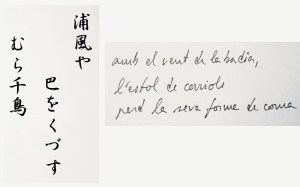 浦風や
巴をくづす
むら千鳥
amb el vent de la badia,
l'estol de corriols
perd la seva forma de coma